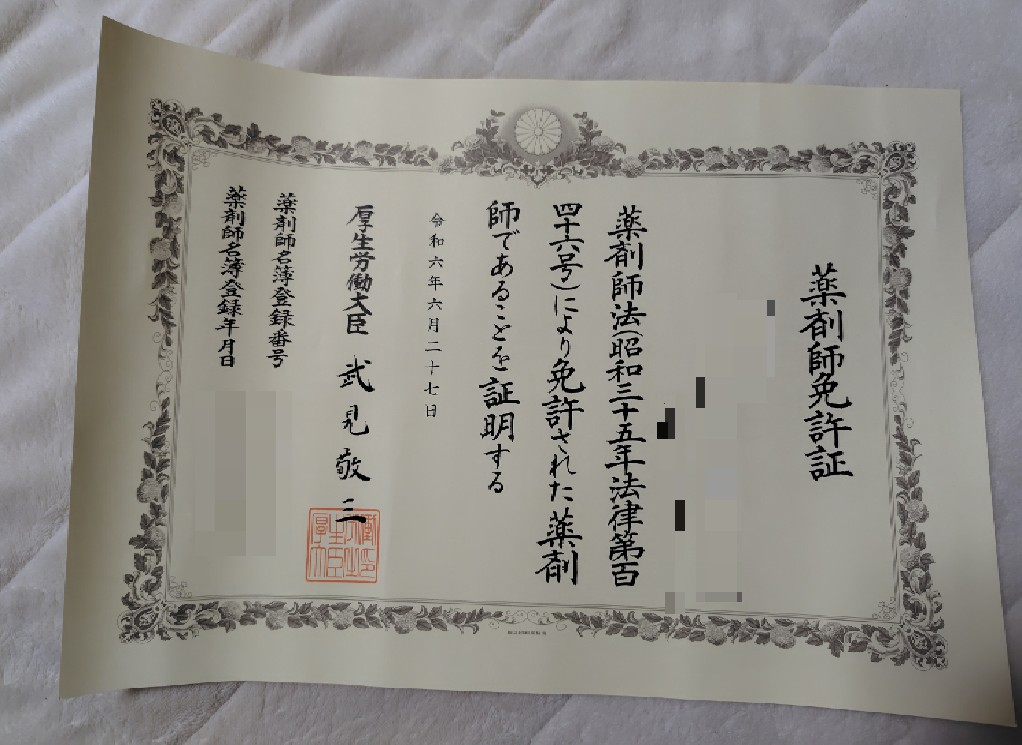 薬剤師免許証
薬剤師法(昭和三十五年法律第百
四十六号)により免許された薬剤
師であることを証明する
令和六年六月二十七日
厚生労働大臣 武見敬三
薬剤師名簿登録番号
薬剤師名簿登録年月日